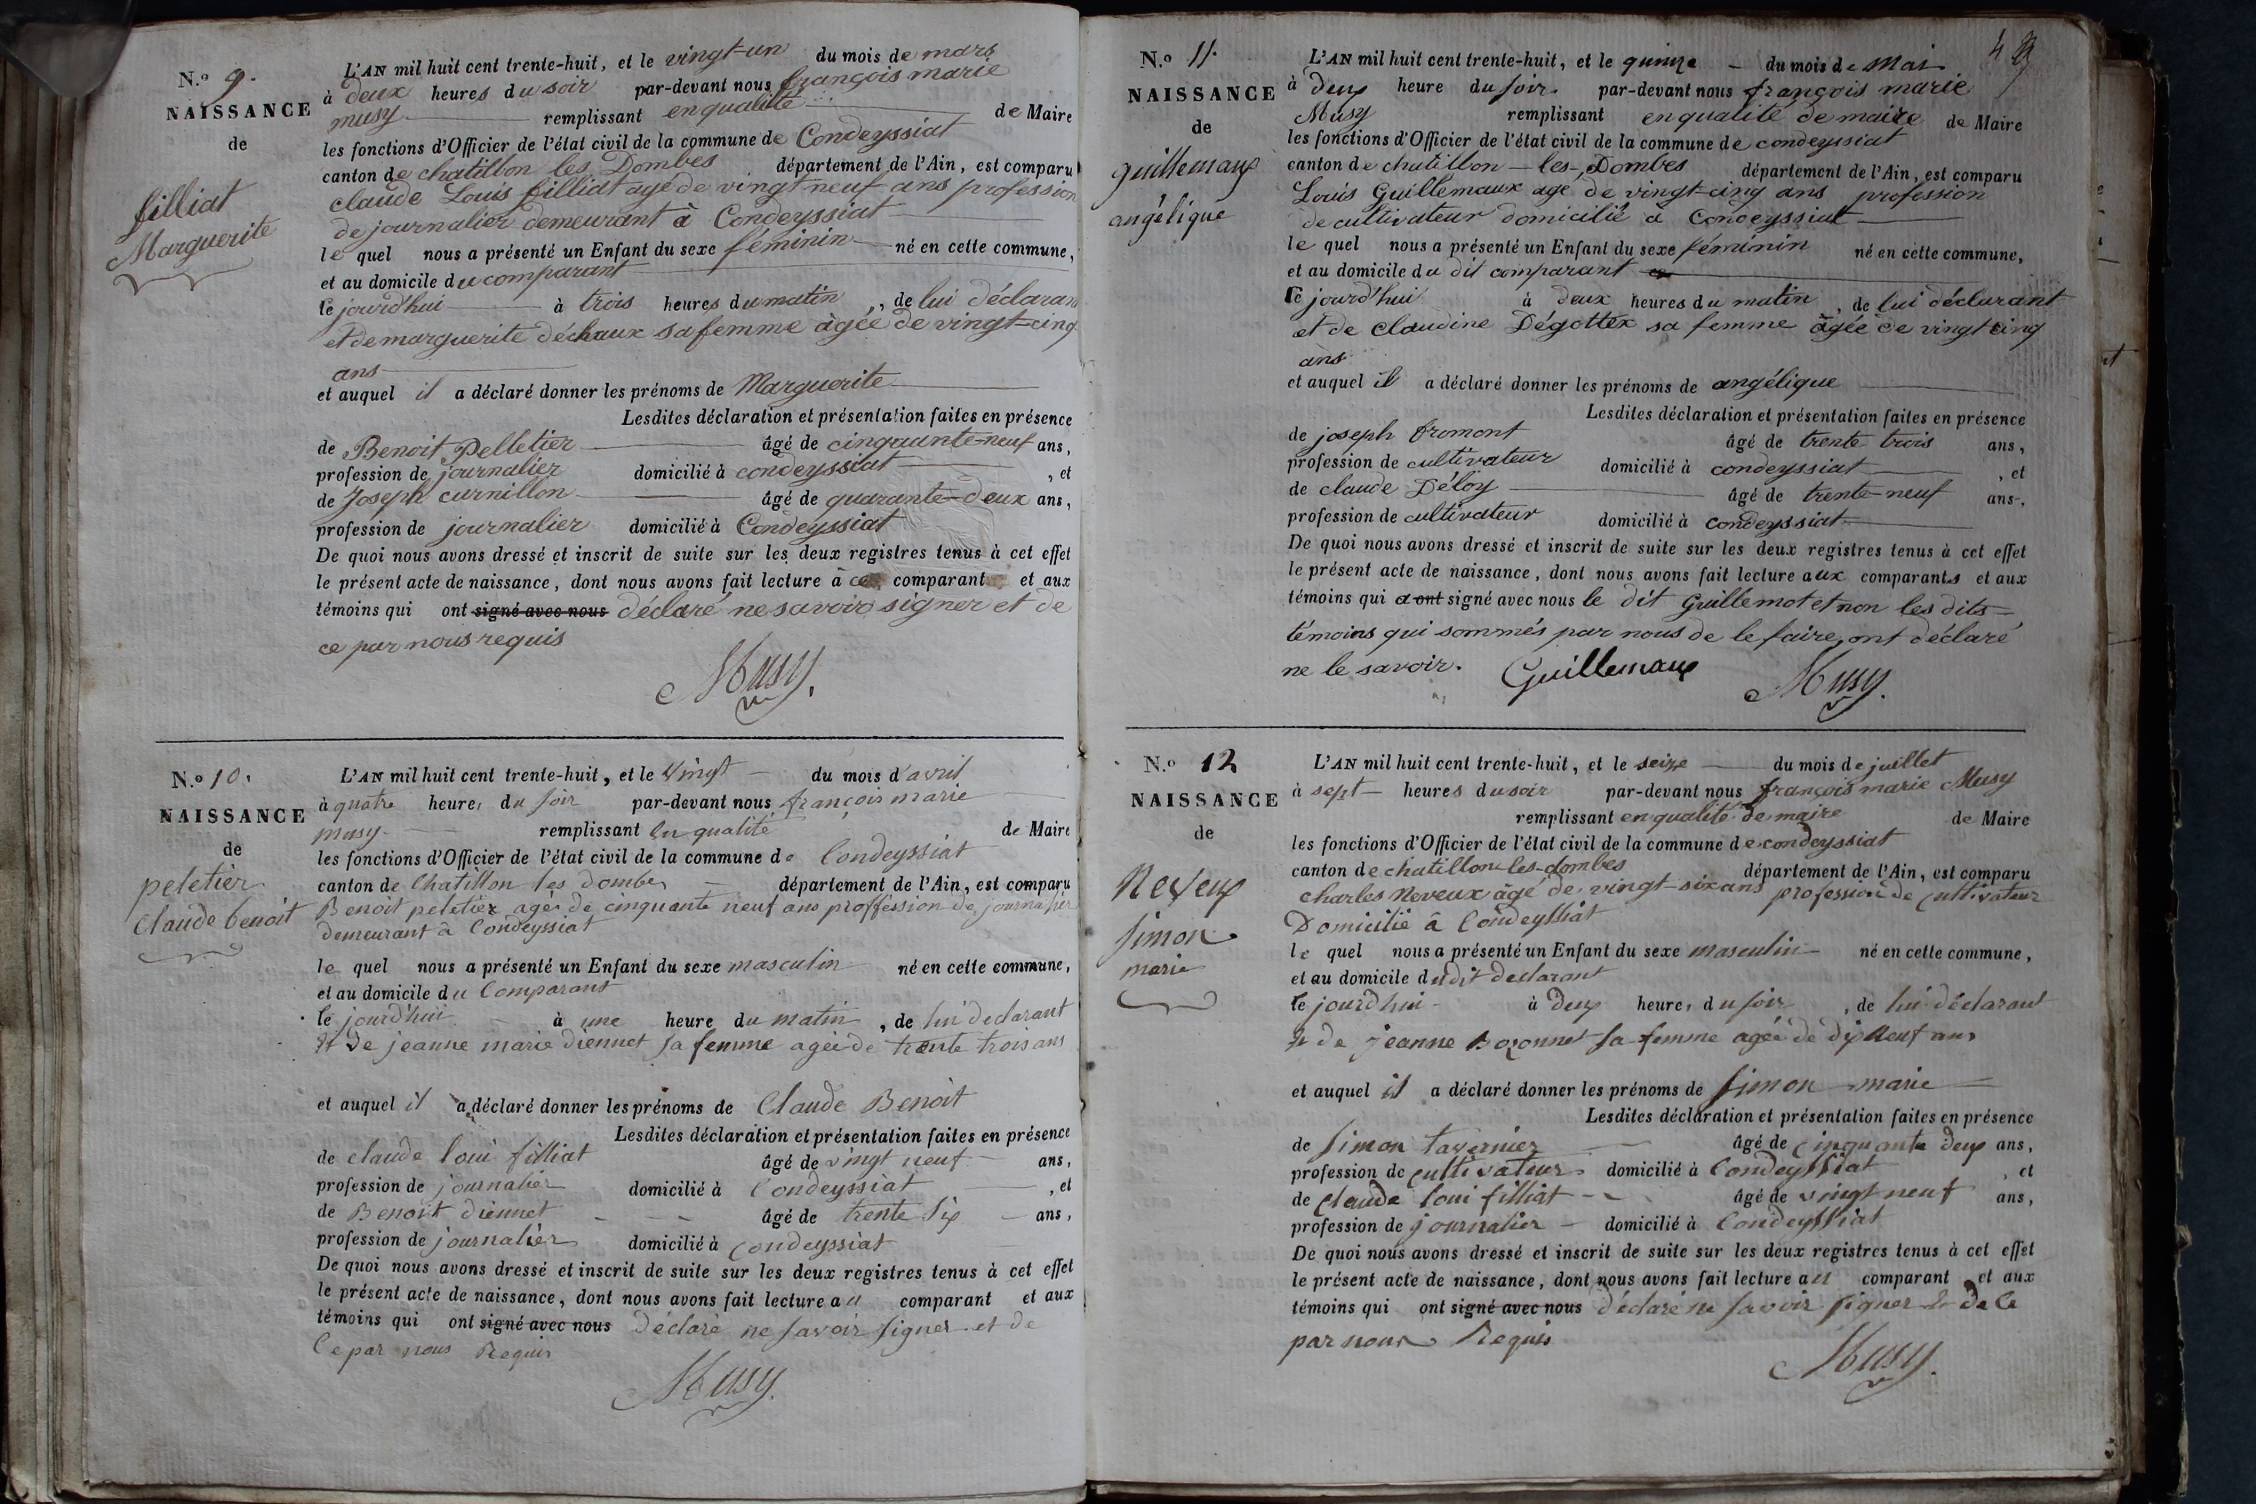 N.o 9.
NAISSANCE
de
filliat
Marguerite
L'AN mil huit cent trente-huit, et le vingt-un du mois de mars
à deux heures du soir par-devant nous françois marie
musy remplissant en qualité de Maire
les fonctions d'Officier de l'état civil de la commune de Condeyssiat
canton de chatillon les Dombes département de l'Ain, est comparu
claude Louis filliat agé de vingt neuf ans profession
de journalier demeurant à Condeyssiat
le quel nous a présenté un Enfant du sexe féminin né en cette commune,
et au domicile du comparant
le jourd'hui à trois heures du matin, de lui déclarant
et de marguerite déchaux sa femme âgée de vingt-cinq
ans
et auquel il a déclaré donner les prénoms de Marguerite
Lesdites déclaration et présentation faites en présence
de Benoit Pelletier âgé de cinquante-neuf ans,
profession de journalier domicilié à condeyssiat, et
de Joseph curnillon âgé de quarante-deux ans,
profession de journalier domicilié à Condeyssiat
De quoi nous avons dressé et inscrit de suite sur les deux registres tenus à cet effet
le présent acte de naissance, dont nous avons fait lecture à comparant et aux
témoins qui ont signé avec nous déclaré ne savoir signer et de
ce par nous requis
Musy.
N.o 10.
NAISSANCE
de
peletier
claude benoit
L'AN mil huit cent trente-huit, et le Vingt du mois d'avril
à quatre heures du soir par-devant nous françois marie
musy remplissant En qualité de Maire
les fonctions d'Officier de l'état civil de la commune de Condeyssiat
canton de Chatillon les dombes département de l'Ain, est comparu
Benoit peletier agé de cinquante neuf ans proffession de journalier
demeurant à Condeyssiat
le quel nous a présenté un Enfant du sexe masculin né en cette commune,
et au domicile du Comparant
le jourd'hui à une heure du matin, de lui declarant
Et de jeanne marie diennet sa femme agée de trente trois ans
et auquel il a déclaré donner les prénoms de Claude Benoit
Lesdites déclaration et présentation faites en présence
de claude loui filliat âgé de vingt neuf ans,
profession de journalier domicilié à Condeyssiat, et
de Benoit diennet âgé de trente Six ans,
profession de journalier domicilié à Condeyssiat
De quoi nous avons dressé et inscrit de suite sur les deux registres tenus à cet effet
le présent acte de naissance, dont nous avons fait lecture au comparant et aux
témoins qui ont signé avec nous déclaré ne savoir signer et de
Ce par nous Requis
Musy.
N.o 11.
NAISSANCE
de
guillemaux
angélique
L'AN mil huit cent trente-huit, et le quinze du mois de Mai
à deux heure du soir par-devant nous françois marie
Musy remplissant en qualité de maire de Maire
les fonctions d'Officier de l'état civil de la commune de condeyssiat
canton de chatillon-les-Dombes département de l'Ain, est comparu
Louis Guillemaux agé de vingt-cinq ans profession
de cultivateur domicilié à Condeyssiat
le quel nous a présenté un Enfant du sexe féminin né en cette commune,
et au domicile du dit comparant
le jourd'hui à deux heures du matin, de lui déclarant
et de claudine Dégottex sa femme âgée de vingt cinq
ans
et auquel il a déclaré donner les prénoms de angélique
Lesdites déclaration et présentation faites en présence
de joseph fromont âgé de trente trois ans,
profession de cultivateur domicilié à condeyssiat, et
de claude Déloy âgé de trente-neuf ans,
profession de cultivateur domicilié à condeyssiat
De quoi nous avons dressé et inscrit de suite sur les deux registres tenus à cet effet
le présent acte de naissance, dont nous avons fait lecture aux comparants et aux
témoins qui a ont signé avec nous le dit Guillemot et non les dits
témoins qui sommés par nous de le faire, ont déclaré
ne le savoir. Guillemaux Musy.
N.o 12
NAISSANCE
de
Neveux
simon
marie
L'AN mil huit cent trente-huit, et le seize du mois de juillet
à sept heures du soir par-devant nous françois marie Musy
remplissant en qualité de maire de Maire
les fonctions d'Officier de l'état civil de la commune de condeyssiat
canton de chatillon-les-dombes département de l'Ain, est comparu
charles Neveux âgé de vingt-six ans profession de cultivateur
Domicilié à Condeyssiat
le quel nous a présenté un Enfant du sexe masculin né en cette commune,
et au domicile dudit declarant
le jourd'hui à deux heures du soir, de lui déclarant
Et de jeanne Bozonnet sa femme agée de dix Neuf ans
et auquel il a déclaré donner les prénoms de simon marie
Lesdites déclaration et présentation faites en présence
de simon tavernier âgé de cinquante deux ans,
profession de cultivateur domicilié à Condeyssiat, et
de claude loui filliat âgé de vingt neuf ans,
profession de journalier domicilié à Condeyssiat
De quoi nous avons dressé et inscrit de suite sur les deux registres tenus à cet effet
le présent acte de naissance, dont nous avons fait lecture au comparant et aux
témoins qui ont signé avec nous déclaré ne savoir signer Et de Ce
par nous Requis
Musy.